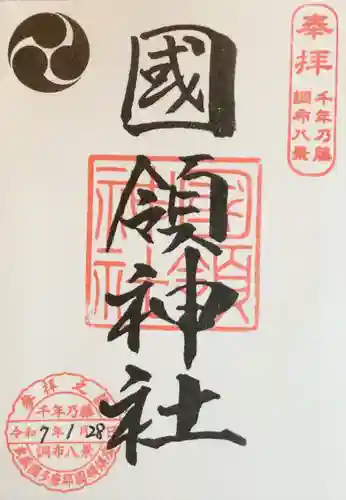 奉拝
千年乃藤
調布八景
國領神社
國領神社
参拝之證
千年乃藤
令和7年1月28日
調布八景